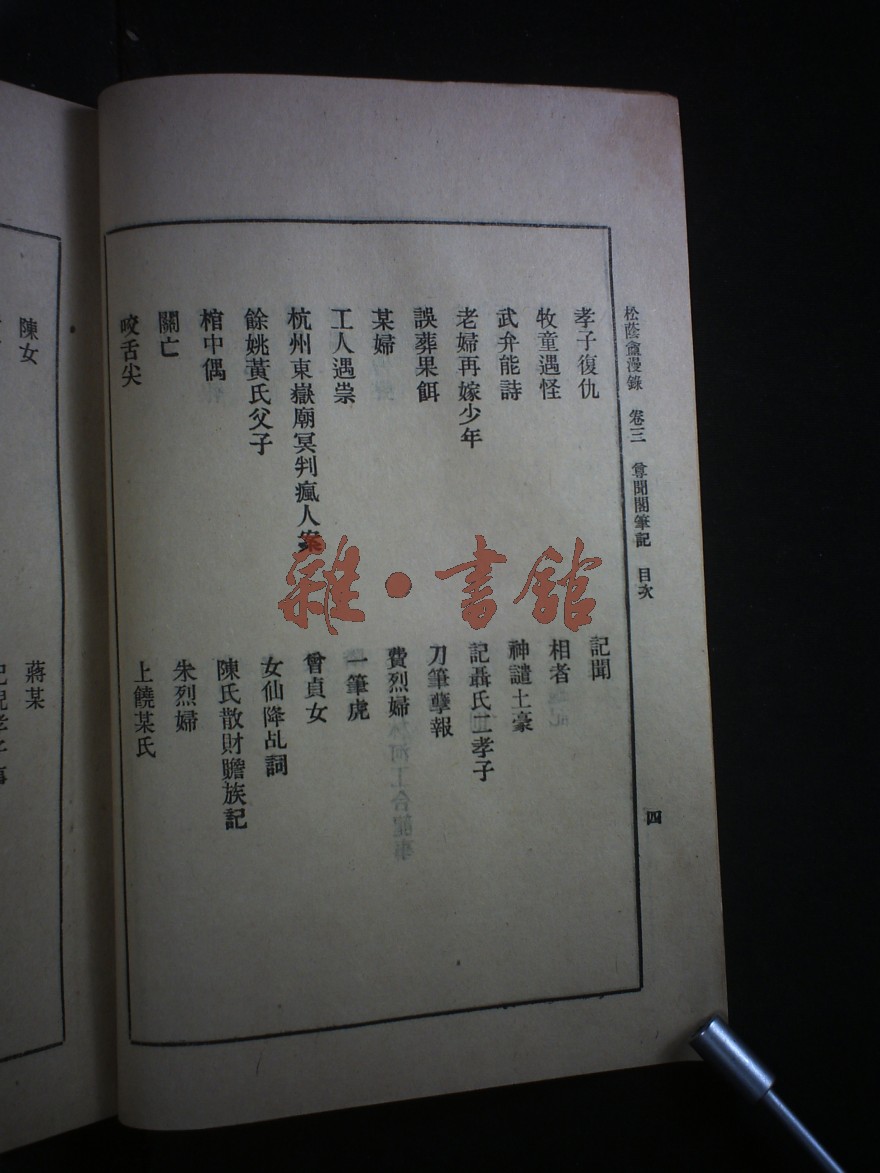 松蔭盦漫錄 卷三 尊聞閣筆記 目次
四
孝子復仇
記聞
牧童遇怪
相者
武弁能詩
神譴土豪
老婦再嫁少年
記聶氏二孝子
誤葬果餌
刀筆孽報
某婦
費烈婦
工人遇祟
一筆虎
杭州東嶽廟冥判瘋人案
曾貞女
餘姚黃氏父子
女仙降乩詞
棺中偶
陳氏散財贍族記
關亡
朱烈婦
咬舌尖
上饒某氏
陳女
蔣某
雜·書館